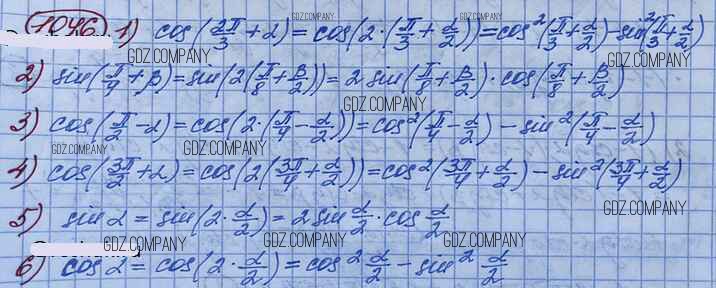 1046 1) cos(2π/3 + α) = cos(2·(π/3 + α/2)) = cos²(π/3 + α/2) - sin²(π/3 + α/2)
GDZ.COMPANY GDZ.COMPANY GDZ.COMPANY
2) sin(π/4 + β) = sin(2(π/8 + β/2)) = 2 sin(π/8 + β/2)·cos(π/8 + β/2)
GDZ.COMPANY
3) cos(π/2 - α) = cos(2·(π/4 - α/2)) = cos²(π/4 - α/2) - sin²(π/4 - α/2)
GDZ.COMPANY GDZ.COMPANY
4) cos(3π/2 + α) = cos(2(3π/4 + α/2)) = cos²(3π/4 + α/2) - sin²(3π/4 + α/2)
GDZ.COMPANY
5) sin α = sin(2·α/2) = 2 sin α/2 · cos α/2
GDZ.COMPANY GDZ.COMPANY GDZ.COMPANY
6) cos α = cos(2·α/2) = cos² α/2 - sin² α/2